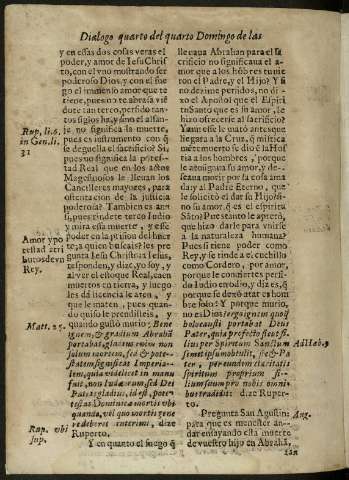 Dialogo quarto del quarto Domingo de las
y en essas dos cosas veras el
poder, y amor de Iesu Chris
to, con el vno mostrando ser
poderoso Dios, y con el fue
go el immenso amor que te
tiene, pues no te abrasa vié
dote tan terco, perdido tan
tos siglos ha, y sino el alfan-
ge no significa la muerte,
pues es instrumento con q̃
se deguella el sacrificio? Si,
pues no significa la potes-
tad Real que en los años
Magestosos le lleuan los
Cancilleres mayores, para
ostentacion de la justicia
poderosa? Tambien es ansi
, pues rindete terco Iudio
y mira essa muerte, y esse
poder en la prision del huer
to, a quien buscais? les pre
gunta Iesu Christo a Iesus,
responden, y dize, yo soy, y
al ver el estoque Real, caen
muertos en tierra, y luego
les dà licencia a esten, y
que le maten, pues quan-
do quiso le prendisteis, y
quando gustò murio: Bene
ignem, & gladium Abrahã
portabat, gladius enim non
solum mortem, sed & pote-
statem significat Imperia-
lem, quia videlicet in manu
fuit, non Iudæorum, sed Dei
Patris gladius, id est, poten-
testas Dominicæ mortis vbi
quando, vel quo mortis gene
redeberet interimi, dize
Ruperto.
Y en quanto el fuego q̃
Rup, li. 6.
in Gen. li,
31
Amor y po
testad atri
butos de vn
Rey.
Matt. 25.
Rup. vbi
sup.
lleuaua Abrahan para el sa
crificio no significaua el a-
mor que a los hóbres tuuie
ron el Padre, y el Hijo? Y si
no dezime perdidos, no di-
xo el Apostol que el Espiri
tu Santo que es su amor, le
hizo ofrecerse al sacrificio?
Y aun esse le matò antes que
llegara a la Cruz, q̃ mistica
méte muerto se dio è la Hos
tia a los hombres, porque
de amor se aguisaua, y de-
seaua morir por la cosa ama
da, y al Padre Eterno, que
le solicitò el dar su Hijo, si-
no su amor, q̃ es el espiritu
Sãto? Pues tanto le apretò,
que hizo darle para vnirse
a la naturaleza humana?
Pues si tiene poder como
Rey, y se rinde a el cuchillo
como Cordero, por amor,
porque le conuiertes perfi-
do Iudio en odio, y dizes, q̃
porque se dexò atar es hom
bre solo: Y porque murio,
no es Dios: ergo ignem quoq;
holocausti portabat Deus
Pater, quia profectò sicut fi-
lius per Spiritum Sanctum
semetipsum obtulit, sic & Pa
ter, per eundem charitatis
spiritum proprium fi-
lium suum pro nobis omni-
bus tradidit: dize Ruper-
to.
Pregunta San Agustin:
para que es menester an-
dar ensayando esta muerte
de vuestro hijo en Abrahã,
Ad Heb. 9
Aug.
tan